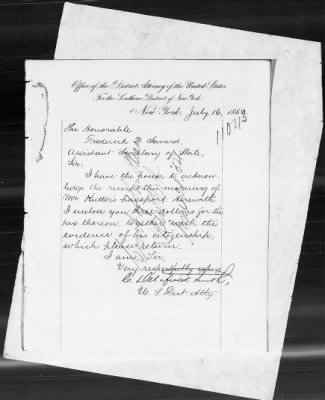 Office of the District Attorney of the United States
For the Southern District of New York
New York July 16, 186
11043
The Honorable
Frederick W Seward,
Assistant Secretary of State,
Sir,
I have the honor to acknow
ledge the receipt this morning of
Mr passport Herewith
I inclose you dollars for the
tax thereon, together with the
evidence of his citizenship,
which please return.
I am, Sir,
Very respectfully
Smith,
U. S Dist Atty